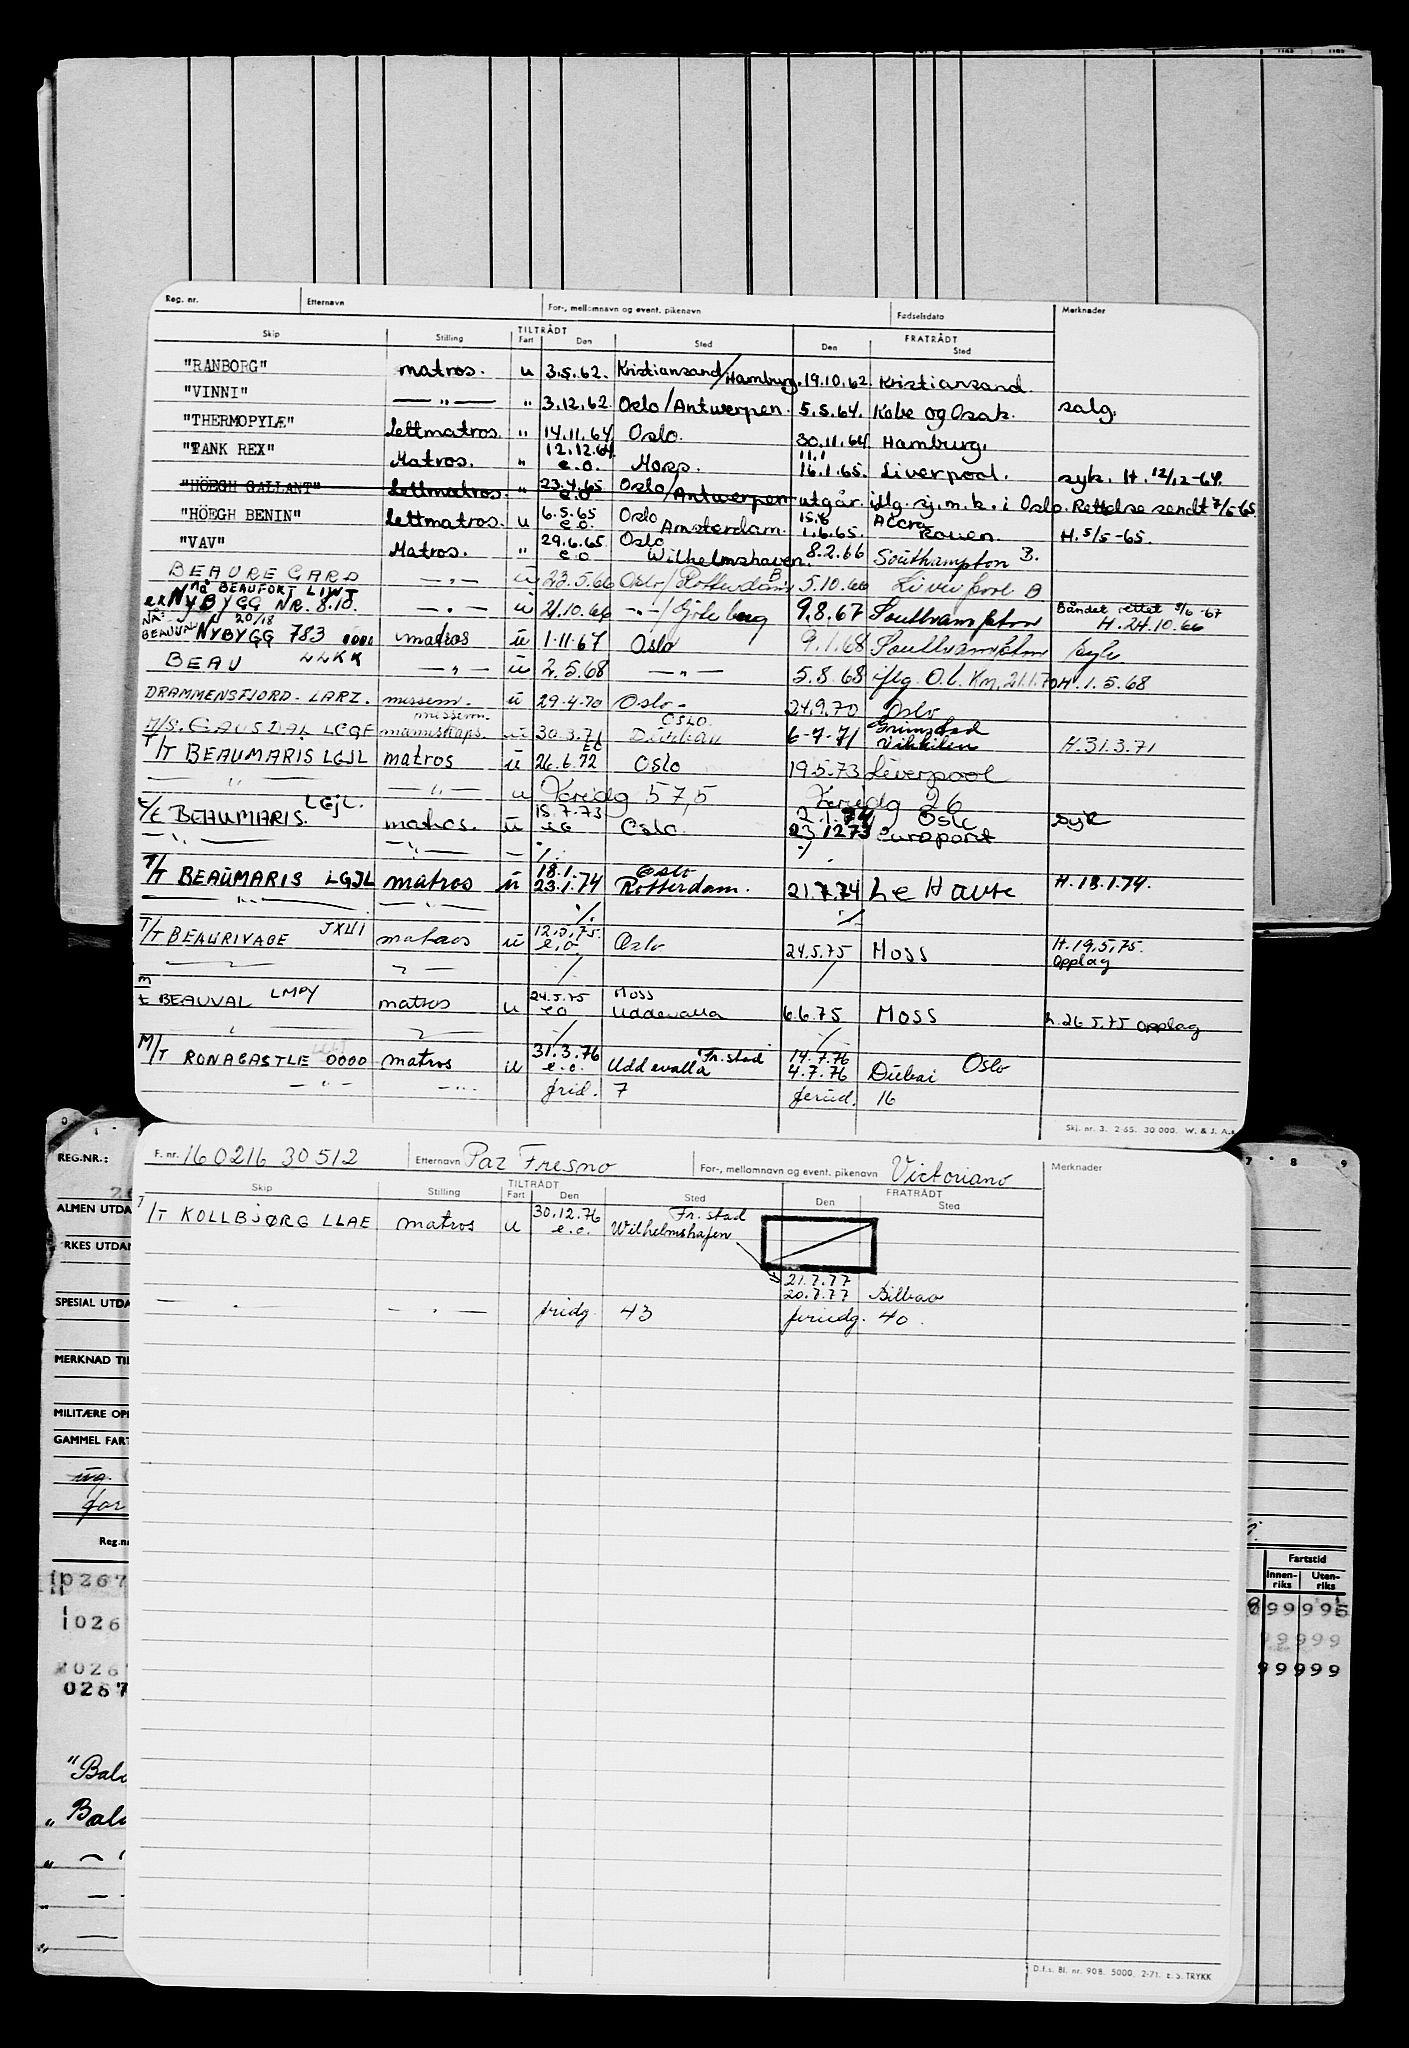 Reg. nr. Etternavn For-, mellomnavn og event. pikenavn Fødselsdato Merknader
Skip Stilling TILTRÅDT Fart Den Sted FRATRÅDT Den Sted
"RANBORG" matros. u 3.5.62. Kristiansand/Hamburg. 19.10.62. Kristiansand.
"VINNI" — " — " 3.12.62. Oslo/Antwerpen. 5.5.64. Kobe og Osak. salg.
"THERMOPYLÆ" Lettmatros. " 14.11.64. Oslo. 30.11.64 Hamburg.
"TANK REX" Matros. " 12.12.64. e.o. Moss. 11.1 16.1.65. Liverpool. syk. H. 12/12-64.
"HÖEGH GALLANT" Lettmatros. " 23.4.65 e.o Oslo/Antwerpen utgår. iflg. sj.m.k. i Oslo. Rettelse sendt 7/5-65.
"HÖEGH BENIN" Lettmatros. u 6.5.65 e.o. Oslo Amsterdam. 15.6 1.6.65. Accra Rouen. H. 5/5-65.
"VAV" Matros. " 29.6.65 e.o Oslo Wilhelmshaven. 8.2.66 Southampton B.
BEAUREGARD — " — ü 23.5.66 Oslo/Rotterdam B 5.10.66 Liverpool B
nå BEAUFORT LIWT
ex NYBYGG NR. 8.10. — " — ü 21.10.66 — " — / Göteborg 9.8.67 Southampton Båndet rettet 9/6-67 H. 24.10.66
NÅ: BEAUVAL NYBYGG 783 0000 matros ü 1.11.67 Oslo 9.1.68 Southampton syk
BEAU LLKK — " — ü 2.5.68 — " — 5.8.68 iflg. O.l. Km. 21.1.70 H. 1.5.68
DRAMMENSFJORD - LARI. messem. ü 29.4.70 Oslo - 24.9.70 Oslo
M/S. GAUSDAL LCQF messem. mannskaps. ü 30.3.71 OSLO. Durban 6-7-71 Grimstad Vikkilen H. 31.3.71
T/T BEAUMARIS LGJL matros ü 26.6.72 EO Oslo 19.5.73 Liverpool
— " — — " — u Feridg 575 Feridg 26
t/t BEAUMARIS. LGJL. matros. ü 15.7.73 eo Oslo. 2.1.74 23.12 73 Oslo Europort syk
— " — — " — — ./. ./.
T/T BEAUMARIS LGJL matros ü 18.1. 23.1.74 Oslo Rotterdam. 21.7.74 Le Havre H. 18.1.74.
— " — — " — ./. ./.
T/T BEAURIVAGE JXUI matros ü 12.5.75. e.o. Oslo 24.5.75 Moss H. 19.5.75. Opplag
— " — — " — / /
m/t BEAUVAL LMPY matros u 24.5.75 eo Moss Uddevalla 6.6.75 Moss h. 26 5.75 Opplag
— " — — " — ./. ./.
M/T RONACASTLE 0000 matros u 31.3.76 e.o. Fr.stad Uddevalla 14.7.76 4.7.76 Dubai Oslo
— " — — " — frid. 7 feried. 16
Skj. nr. 3. 2-65. 30 000. W. & J. A.s
F. nr. 160216 30512 Etternavn Paz Fresno For-, mellomnavn og event. pikenavn Victoriano Merknader
Skip Stilling TILTRÅDT Fart Den Sted FRATRÅDT Den Sted
T/T KOLLBJØRG LLAE matros u 30.12.76 e.o. Fr.stad Wilhelmshafen
21.7.77
20.7.77 Bilbao
— " — — " — fridg. 43 feriedg. 40.
D.f.s. Bl. nr. 908. 5000. 2-71. E. S. TRYKK
REG.NR.: 7 8 9
ALMEN UTDA
RKES UTDAN
SPESIAL UTDA
MERKNAD TIL
MILITÆRE OPP
GAMMEL FART
for
Reg.nr Fartstid
Innenriks Utenriks
10267 99 999 5
1026 99 999
2026
0267 99999
"Bal
" Bal